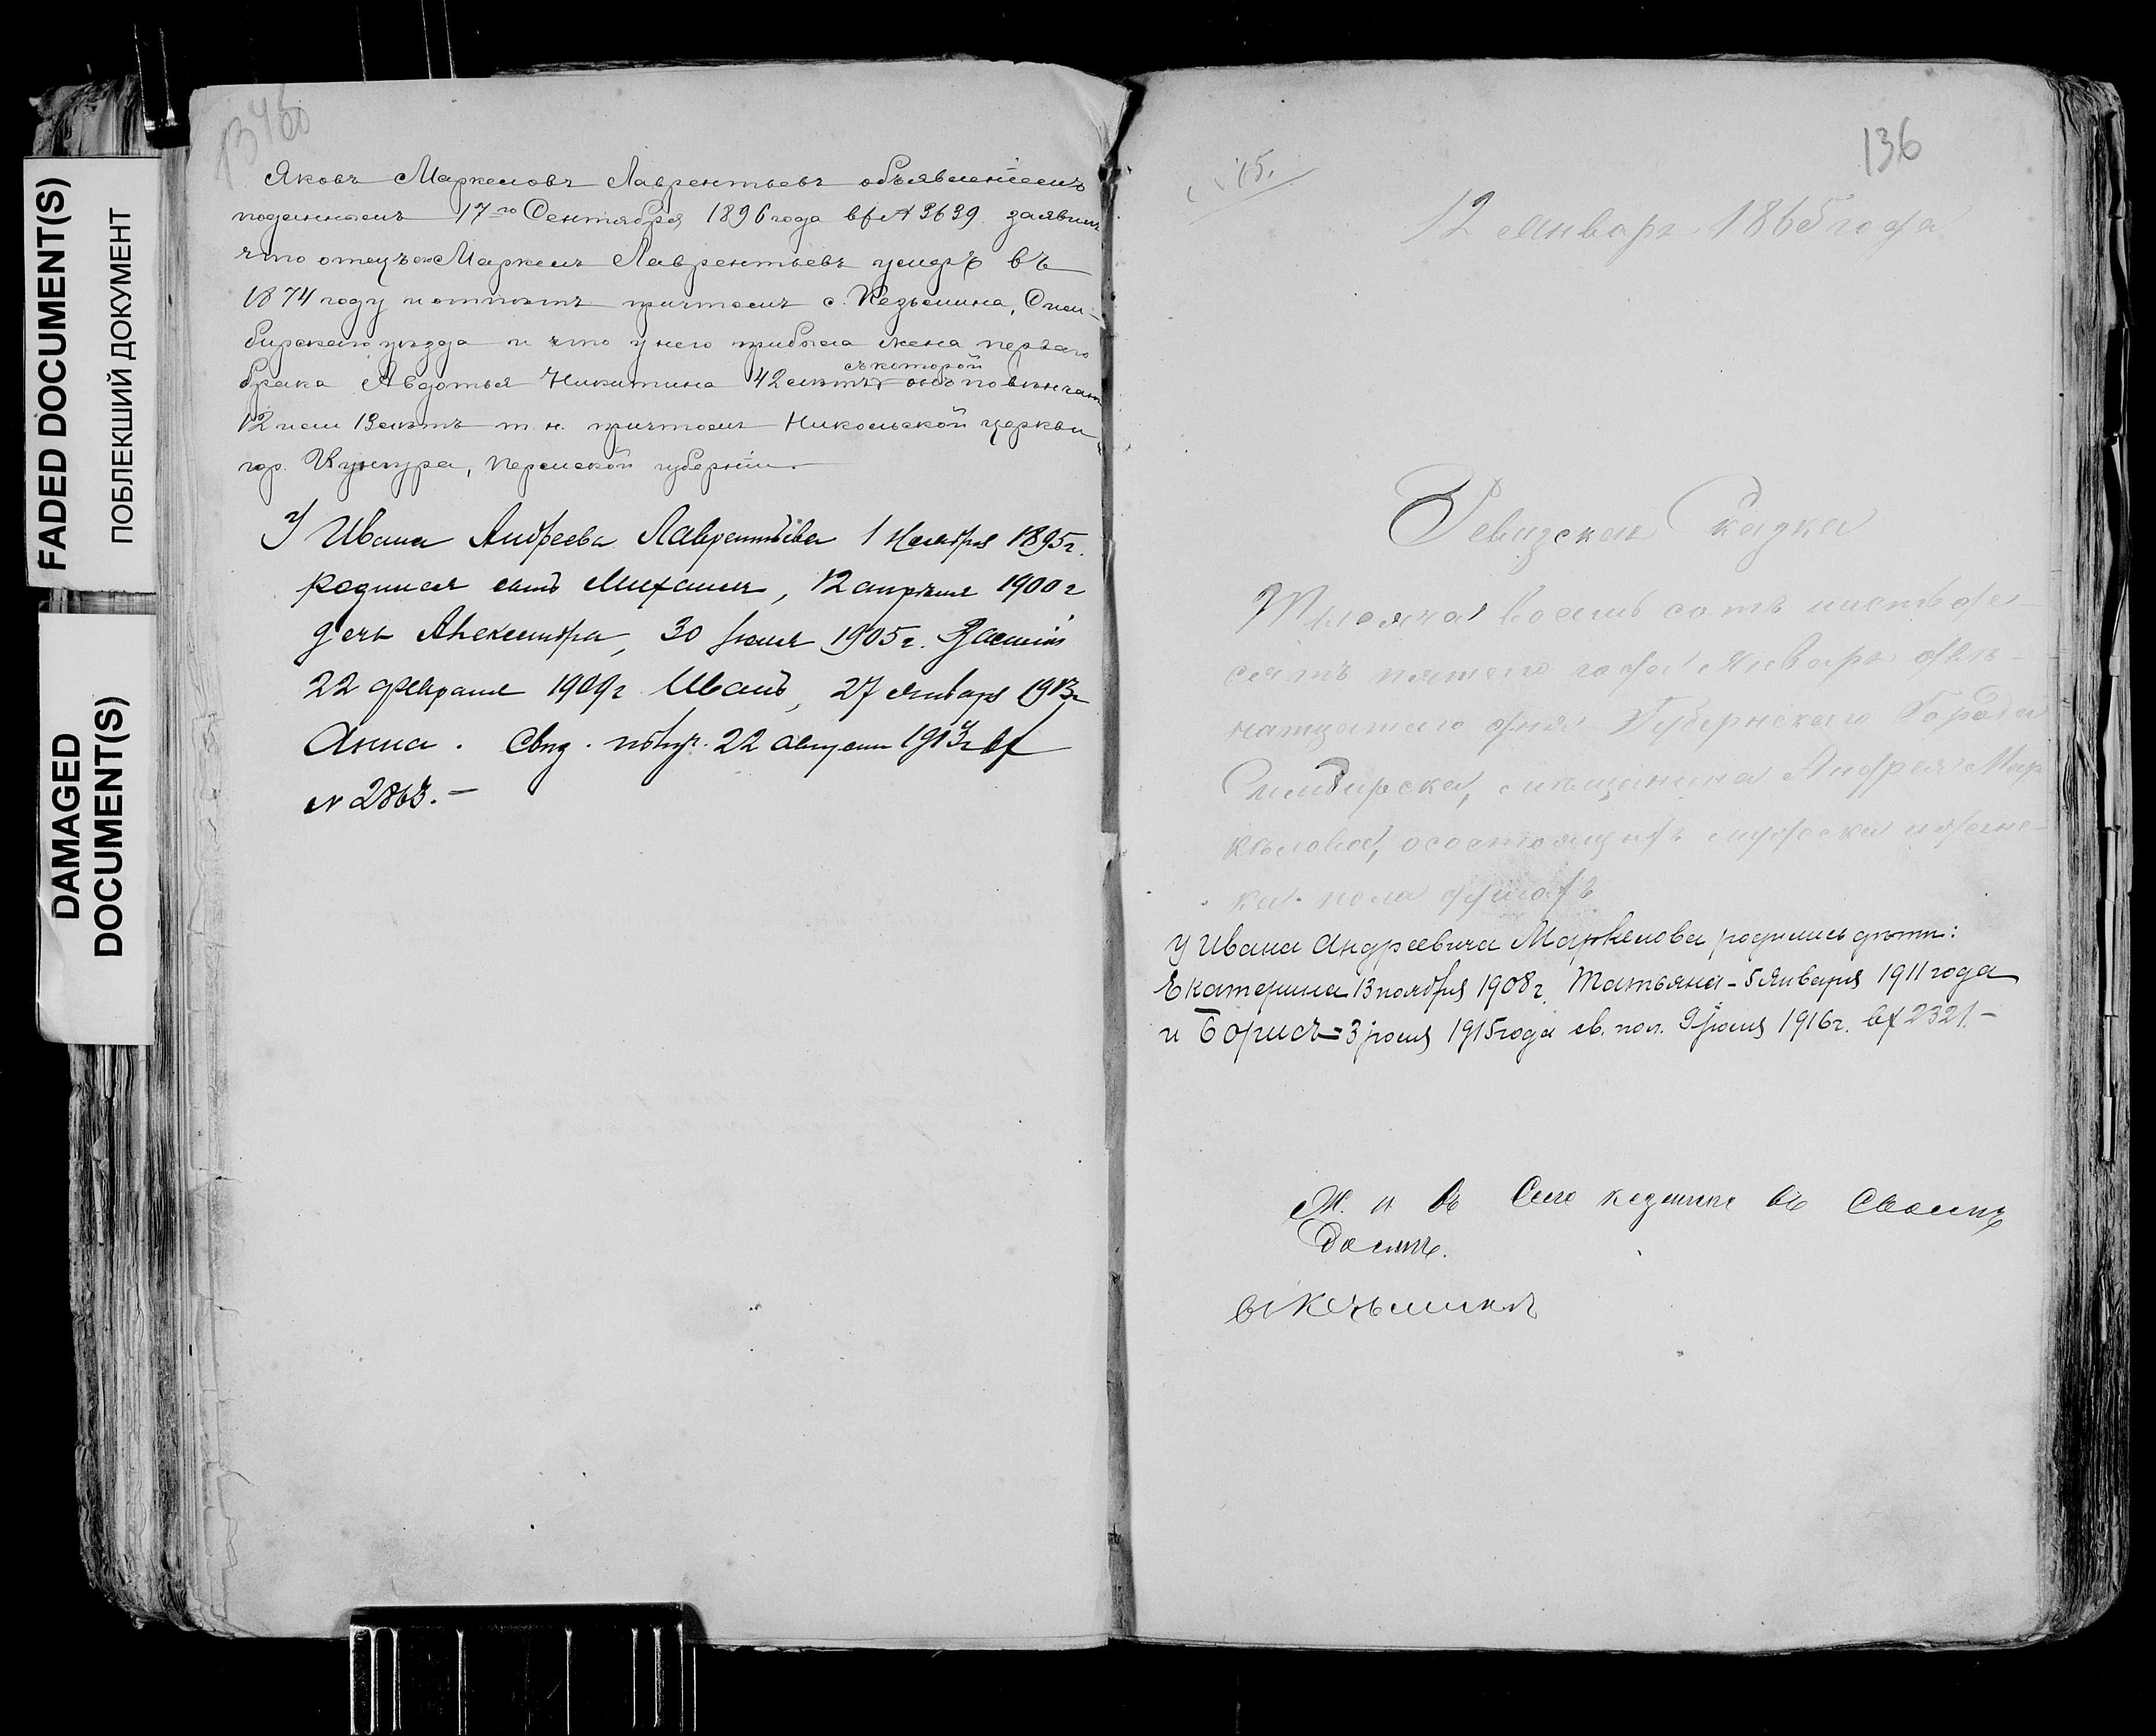 FADED DOCUMENT(S)
ПОБЛЕКШИЙ ДОКУМЕНТ
DAMAGED
DOCUMENT(S)
Яковъ Маркеловъ Лаврентьевъ объявленіемъ
поданнымъ 17го Сентября 1896 года вх № 3639 заявилъ
что отецъ его Маркелъ Лаврентьевъ умеръ въ
1874 году и отпѣтъ причтомъ с. Кезьмина, Сим-
бирскаго уѣзда и что у него прибыла жена перваго
брака Авдотья Никитина 42 лѣтъ съ которой онъ повѣнчанъ
12 или 13 лѣтъ т. н. причтомъ Никольской церкви
гор. Кунгура, Пермской губерніи.
У Ивана Андреева Лаврентьева 1 Ноября 1895 г.
родился сынъ Михаилъ, 12 апрѣля 1900 г
дочь Александра, 30 Іюля 1905 г.
22 февраля 1909 г Иванъ, 27 Января 1913 г
Анна. Свид. получ. 22 августа 1913 г вх
№ 2863.
136
12 Январь 1865 года
Ревизская Сказка
Тысяча восемь сотъ шестьде-
сятъ пятаго года Январь двѣ-
натцатаго дня Губернскаго Города
Симбирска, мѣщанина Андрея Мар
кѣлова, осостоящихъ мужеска и женс-
ка пола душахъ
У Ивана Андреевича Маркелова родились дѣти:
Екатерина 13 ноября 1908 г. Татьяна - 5 Января 1911 года
и Борисъ = 3 іюля 1915 года св. пол. 9 іюля 1916 г. вх 2321. -
Ж. и въ Селе кезмине въ Своемъ
Доме.